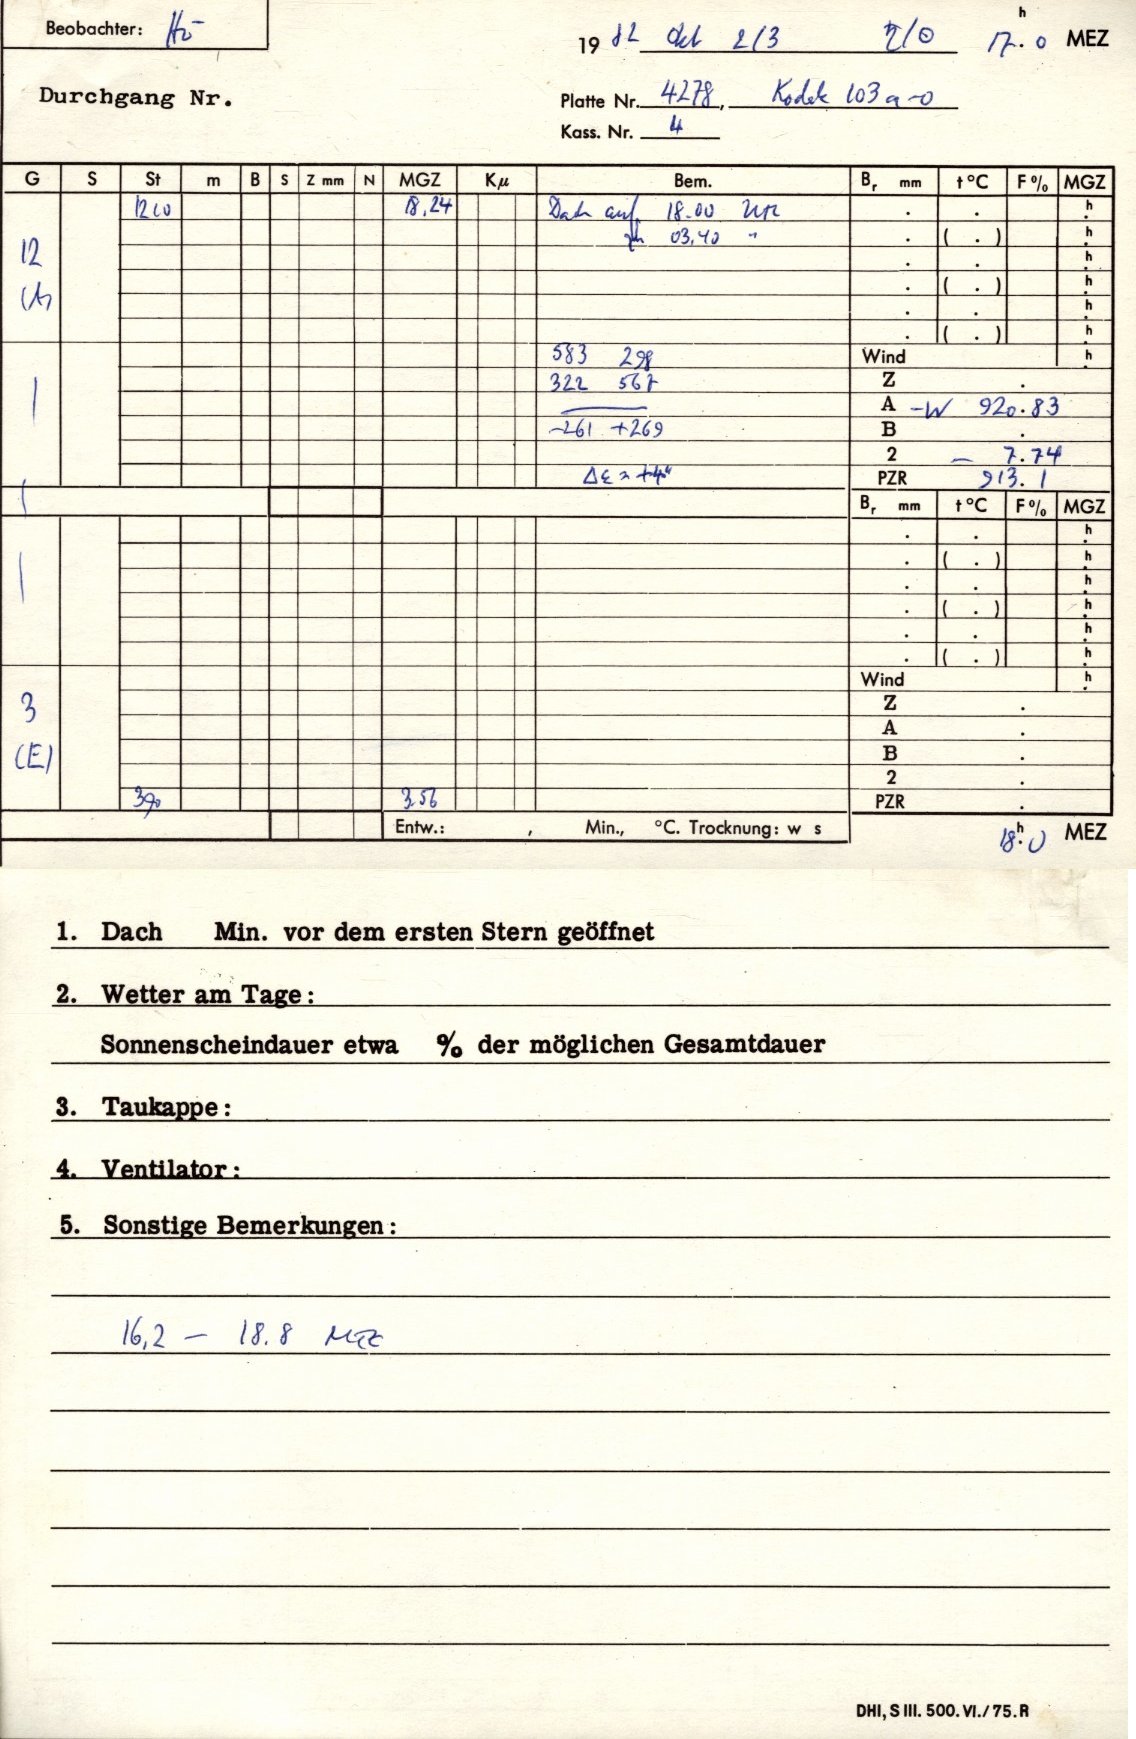 Beobachter: Hö
19 82 Okt 2/3 17.h0 MEZ
Durchgang Nr.
Platte Nr. 4278, Kodak 103 a-0
Kass. Nr. 4
G S St m B S Z mm N MGZ Kµ Bem. Br mm t°C F% MGZ
18.24 Dach auf 18.00 . . h
12 zu 03.40 " . ( . ) h
. . h
(A) . ( . ) h
. . h
. ( . ) h
583 298 Wind h
322 567 Z .
A -W 920.83
-261 +269 B .
2 - 7.74
Δε ≈ +4" PZR 913.1
Br mm t°C F% MGZ
. . h
. ( . ) h
. . h
. ( . ) h
. . h
. ( . ) h
Wind h
3 Z .
A .
(E) B .
2 .
390 3.56 PZR .
Entw.: , Min., °C. Trocknung: w s
18.h0 MEZ
1. Dach Min. vor dem ersten Stern geöffnet
2. Wetter am Tage:
Sonnenscheindauer etwa % der möglichen Gesamtdauer
3. Taukappe:
4. Ventilator:
5. Sonstige Bemerkungen:
16,2 — 18.8 MEZ
DHI, S III. 500. VI./75. R